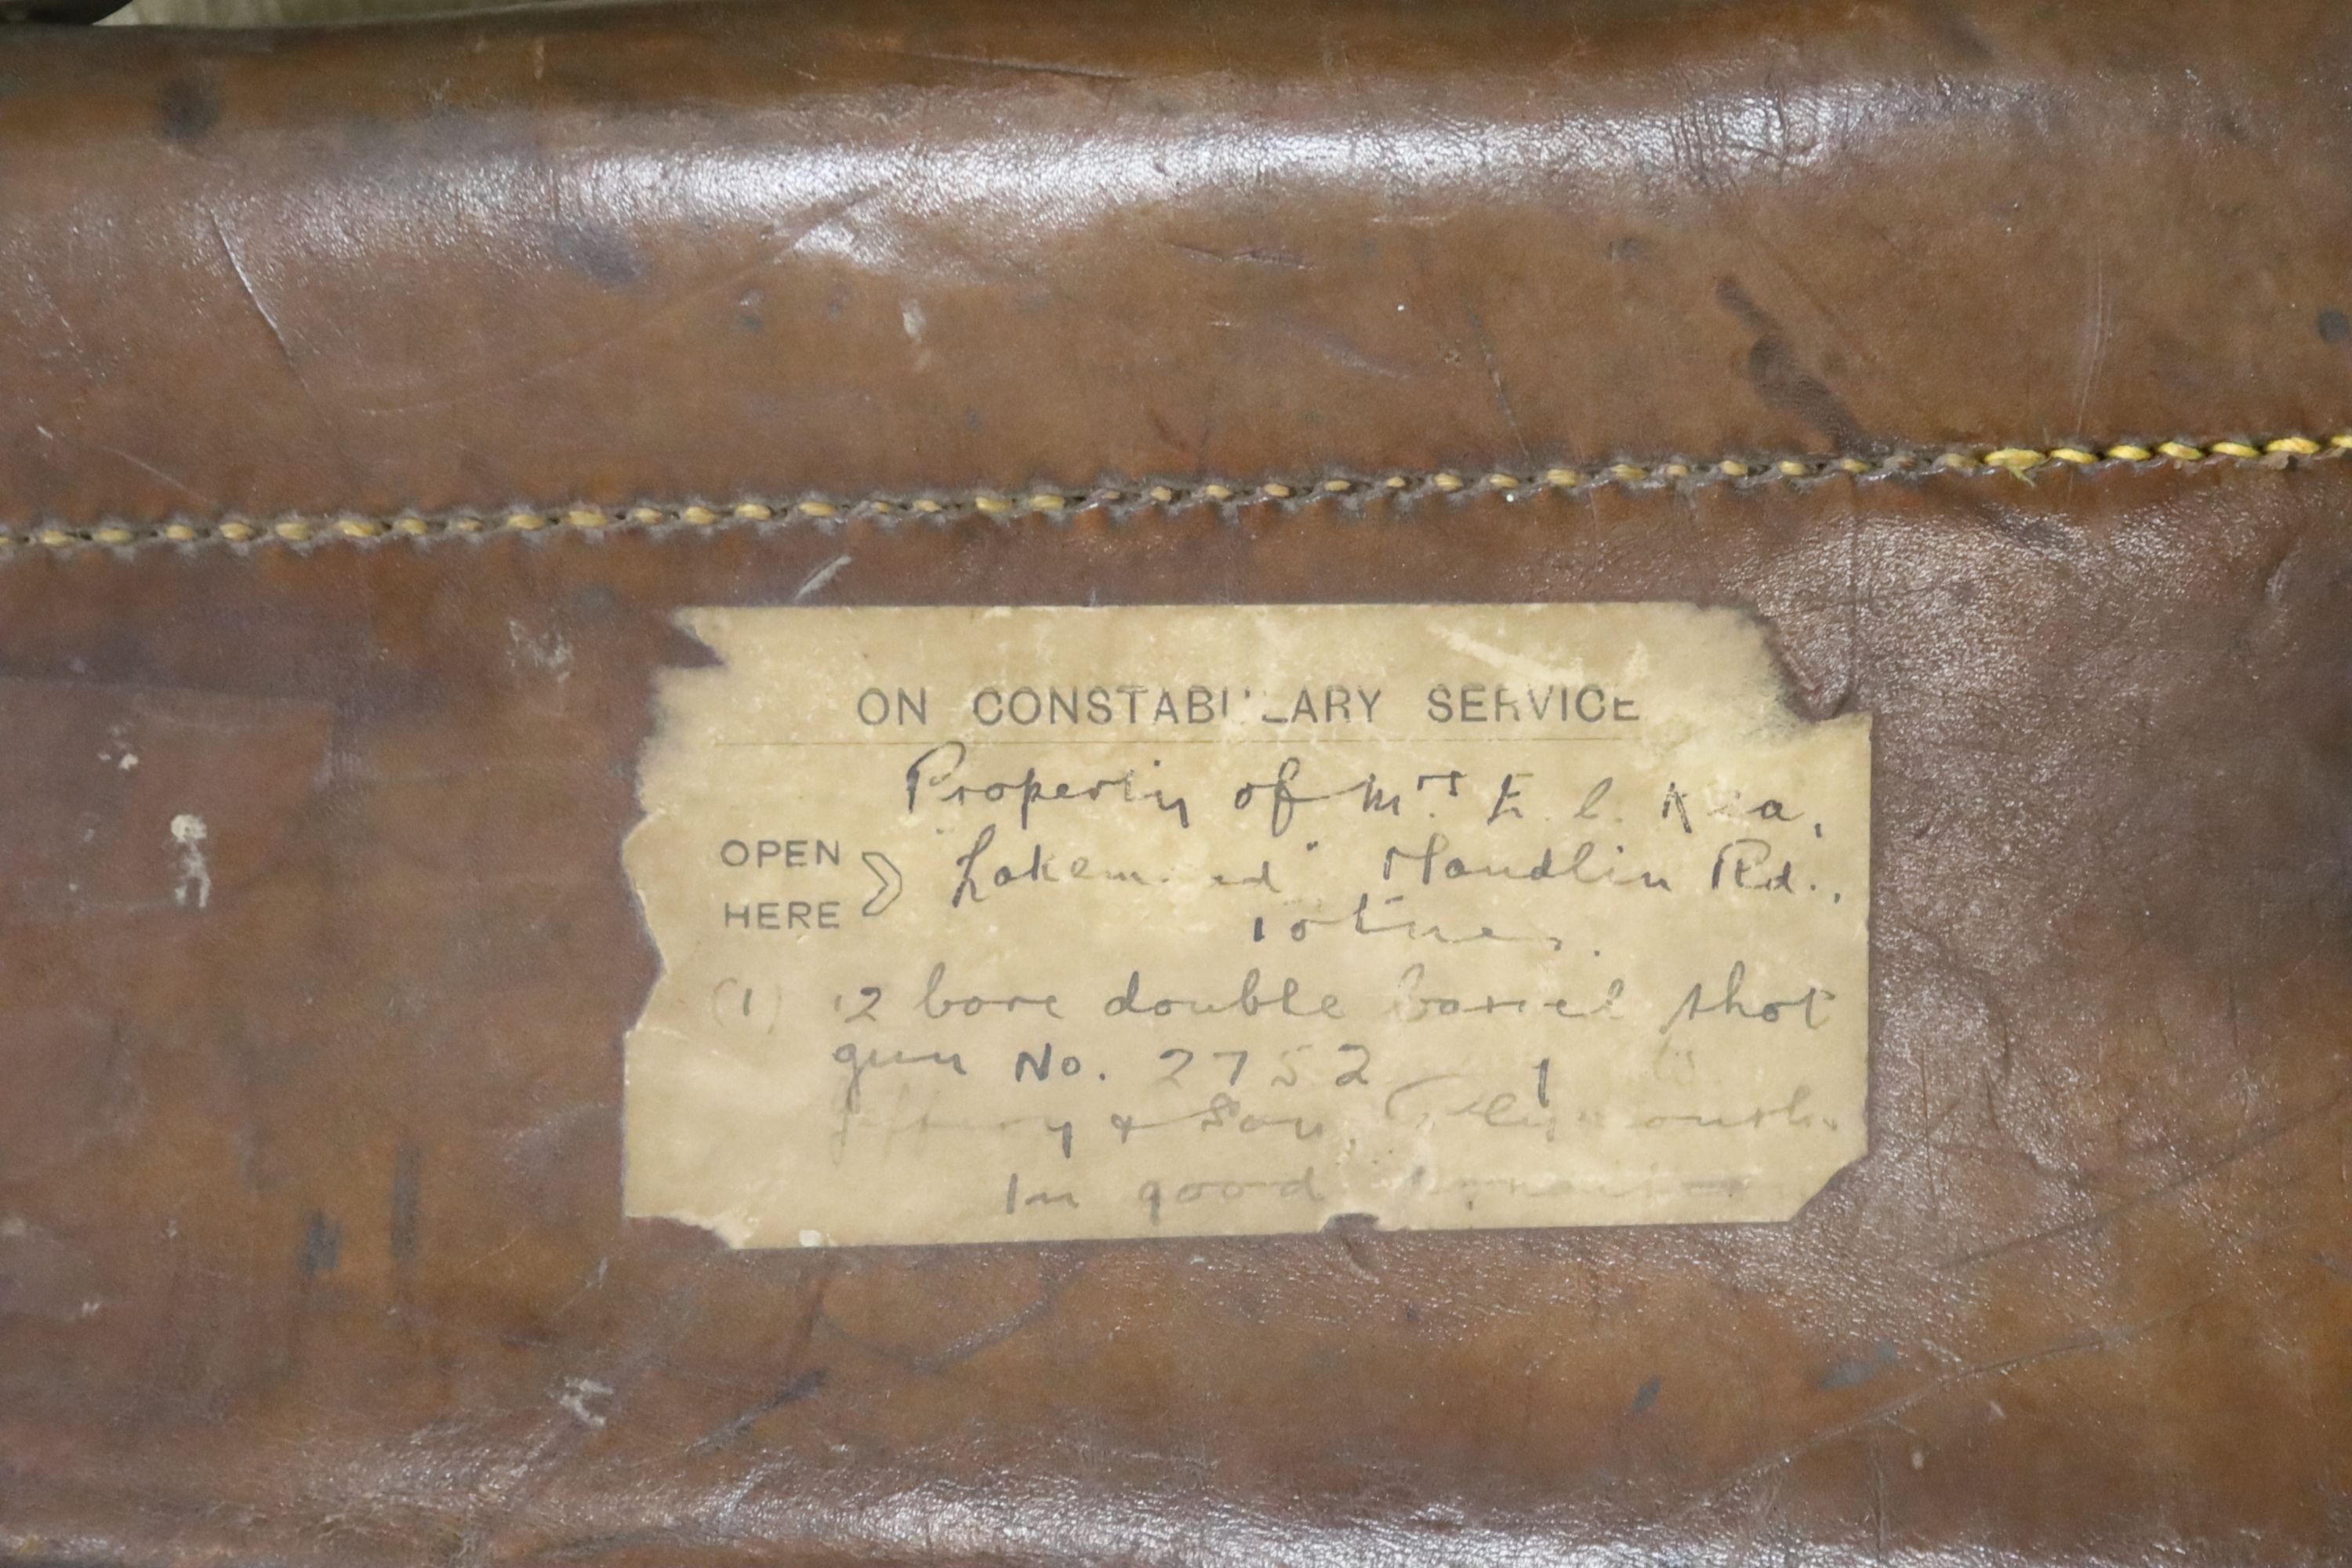 ON CONSTABULARY SERVICE
Property of Mrs E. C.
OPEN HERE
Maudlin Rd.,
Totnes.
(1) 12 bore double barrel shot
gun No. 2752
Jeffery & Son, Plymouth.
In good